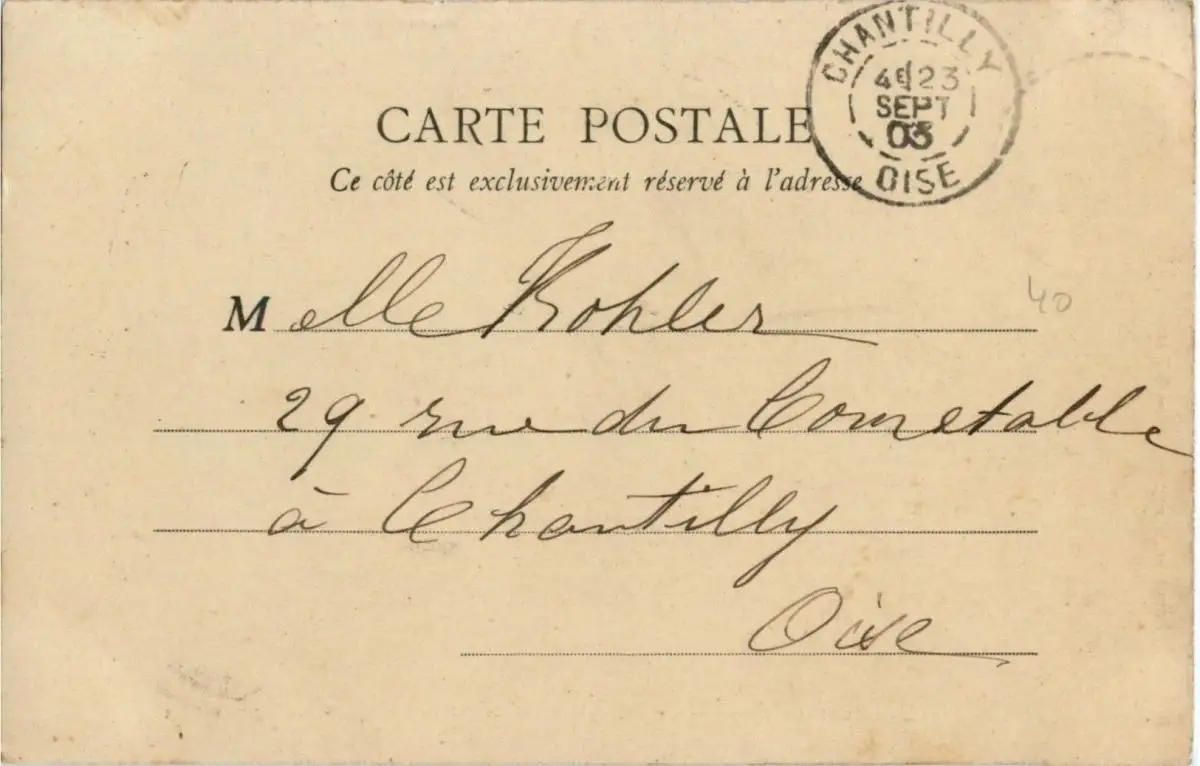 CHANTILLY
4E 23
SEPT
03
OISE
CARTE POSTALE
Ce côté est exclusivement réservé à l'adresse
Melle Kohler
40
29 rue du Connetable
à Chantilly
Oise